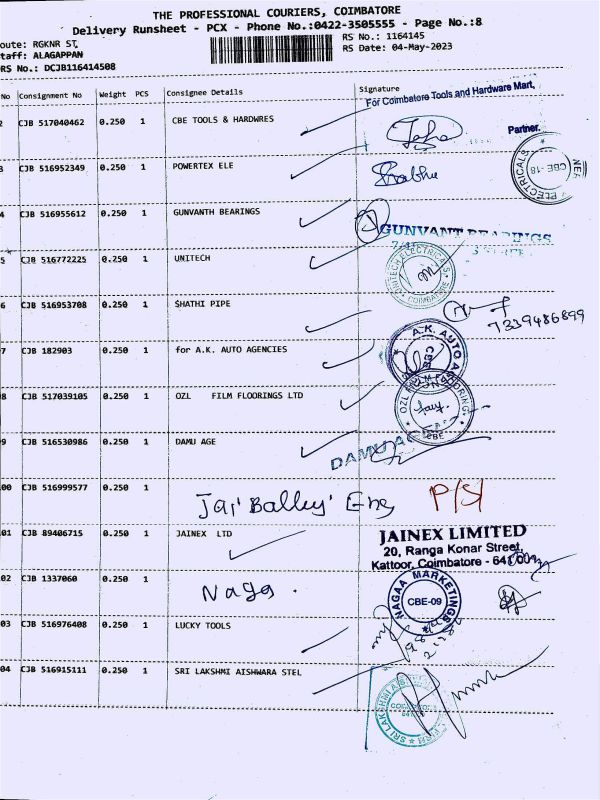 THE PROFESSIONAL COURIERS, COIMBATORE
Delivery Runsheet - PCX - Phone No.:0422-3505555 - Page No.:8
oute: RGKNR ST,
RS No.: 1164145
taff: ALAGAPPAN
RS Date: 04-May-2023
RS No.: DCJB116414508
No Consignment No Weight PCS Consignee Details Signature
For Coimbatore Tools and Hardware Mart,
2 CJB 517040462 0.250 1 CBE TOOLS & HARDWRES
Partner.
3 CJB 516952349 0.250 1 POWERTEX ELE
Prabhu
ELECTRICALS
CBE-18
4 CJB 516955612 0.250 1 GUNVANTH BEARINGS
GUNVANT BEARINGS
5 CJB 516772225 0.250 1 UNITECH
UNITECH ELECTRICALS
COIMBATORE
6 CJB 516953708 0.250 1 SHATHI PIPE
7339486899
7 CJB 182903 0.250 1 for A.K. AUTO AGENCIES
A.K. AUTO
CBE
8 CJB 517039105 0.250 1 OZL FILM FLOORINGS LTD
OZL FLOORING
CBE
9 CJB 516530986 0.250 1 DAMU AGE
DAMU AG
00 CJB 516999577 0.250 1 Jai Balley Eng P/S/
01 CJB 89406715 0.250 1 JAINEX LTD
JAINEX LIMITED
20, Ranga Konar Street,
Kattoor, Coimbatore - 641 009
02 CJB 1337060 0.250 1 Naga.
NAGAA MARKETINGS
CBE-09
03 CJB 516976408 0.250 1 LUCKY TOOLS
04 CJB 516915111 0.250 1 SRI LAKSHMI AISHWARA STEL
SRI LAKSHMI